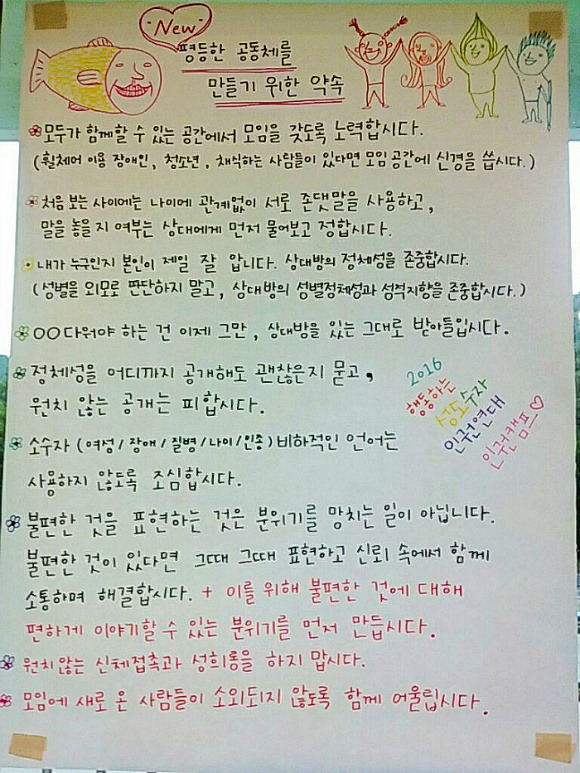 New
평등한 공동체를
만들기 위한 약속
모두가 함께할 수 있는 공간에서 모임을 갖도록 노력합시다.
(휠체어 이용 장애인, 청소년, 채식하는 사람들이 있다면 모임 공간에 신경을 씁시다.)
처음 보는 사이에는 나이에 관계없이 서로 존댓말을 사용하고,
말을 놓을지 여부는 상대에게 먼저 물어보고 정합시다.
내가 누구인지 본인이 제일 잘 압니다. 상대방의 정체성을 존중합시다.
(성별을 외모로 판단하지 말고, 상대방의 성별정체성과 성적지향을 존중합시다.)
○○다워야 하는 건 이제 그만, 상대방을 있는 그대로 받아들입시다.
정체성을 어디까지 공개해도 괜찮은지 묻고,
원치 않는 공개는 피합시다.
2016
행동하는
성소수자
인권연대
인권캠프♡
소수자 (여성/장애/질병/나이/인종) 비하적인 언어는
사용하지 않도록 조심합시다.
불편한 것을 표현하는 것은 분위기를 망치는 일이 아닙니다.
불편한 것이 있다면 그때 그때 표현하고 신뢰 속에서 함께
소통하며 해결합시다. + 이를 위해 불편한 것에 대해
편하게 이야기할 수 있는 분위기를 먼저 만듭시다.
원치않는 신체접촉과 성희롱을 하지 맙시다.
모임에 새로 온 사람들이 소외되지 않도록 함께 어울립시다.